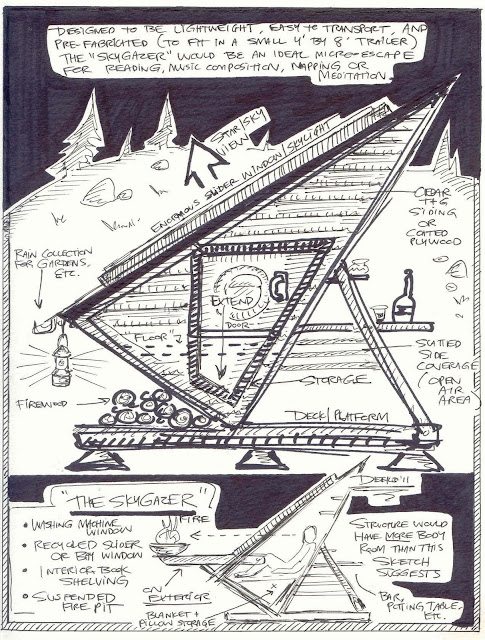 DESIGNED TO BE LIGHTWEIGHT, EASY TO TRANSPORT, AND
PRE-FABRICATED (TO FIT IN A SMALL 4' BY 8' TRAILER)
THE "SKYGAZER" WOULD BE AN IDEAL MICRO-ESCAPE
FOR READING, MUSIC COMPOSITION, NAPPING OR
MEDITATION.
STAR/SKY
VIEW
ENORMOUS SLIDER WINDOW/SKYLIGHT
CEDAR
T+G
SIDING
OR
COATED
PLYWOOD
RAIN COLLECTION
FOR GARDENS,
ETC.
EXTEND
DOOR
"FLOOR"
STORAGE
SLATTED
SIDE
COVERAGE
(OPEN
AIR
AREA)
FIREWOOD
DECK/PLATFORM
"THE SKYGAZER"
• WASHING MACHINE
WINDOW
• RECYCLED SLIDER
OR BAY WINDOW
• INTERIOR BOOK
SHELVING
• SUSPENDED
FIRE PIT
FIRE
ON
EXTERIOR
BLANKET +
PILLOW STORAGE
DEEK 11
STRUCTURE WOULD
HAVE MORE BODY
ROOM THAN THIS
SKETCH
SUGGESTS
BAR,
POTTING TABLE,
ETC.